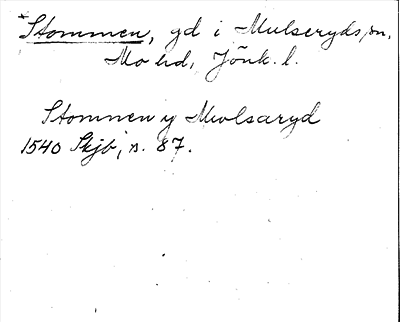 *Stommen, yd i Mulseryds sn,
Mo hd, Jönk. l.
Stommen y Mwlsaryd
1540 Skjb, s. 87.